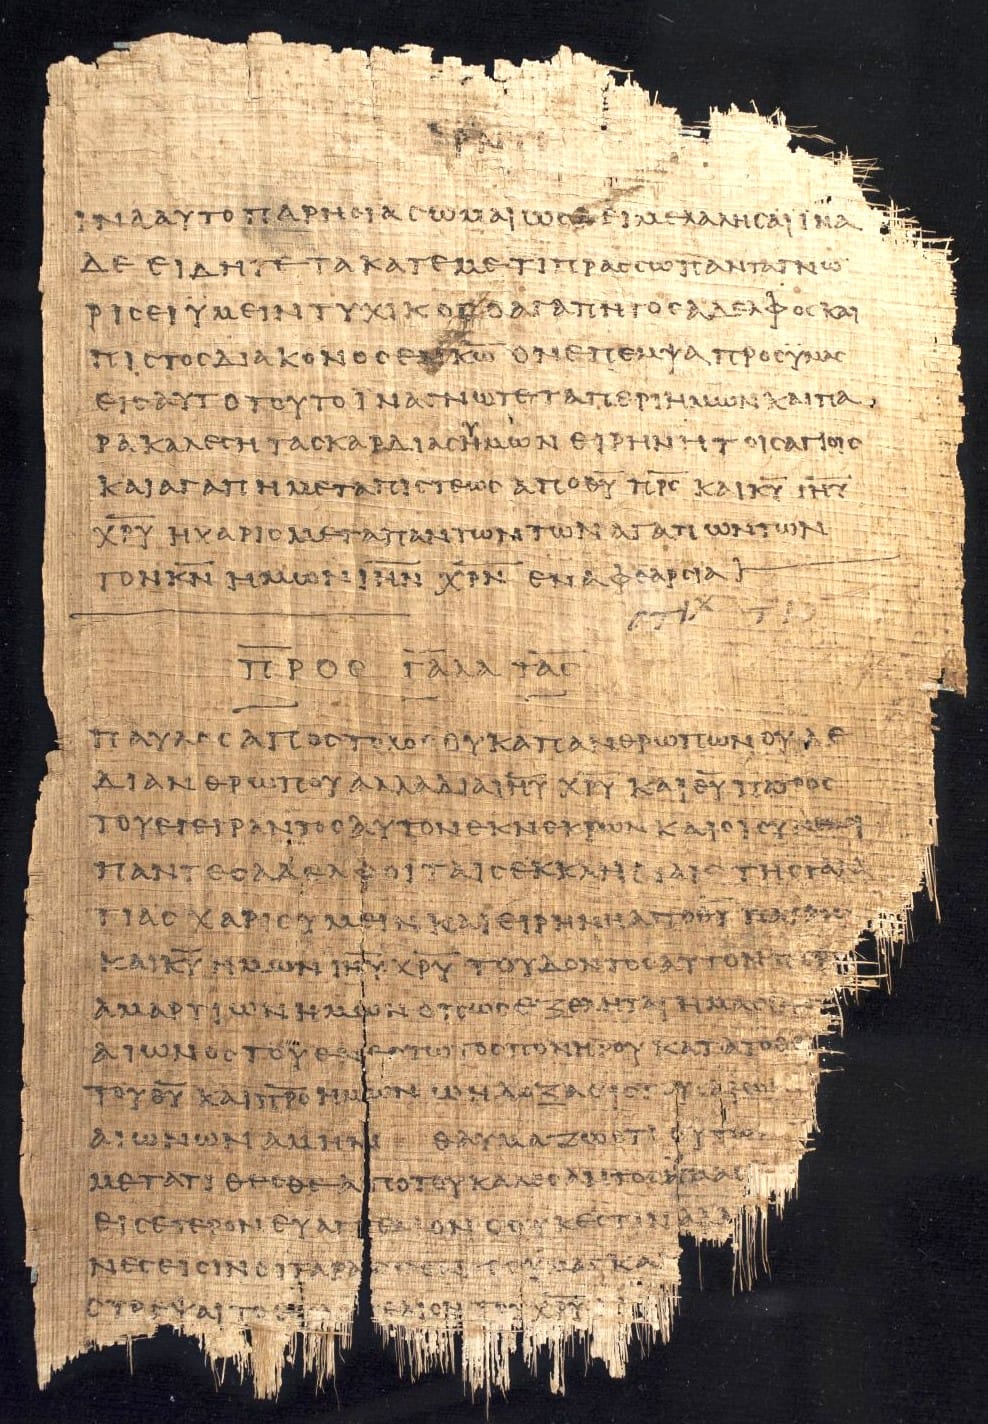 ΡΝΗ
ΙΝΑ ΑΥΤΟ ΠΑΡΗСΙΑСΩΜΑΙ ΩС ΔΕΙ ΜΕ ΛΑΛΗСΑΙ ΙΝΑ
ΔΕ ΕΙΔΗΤΕ ΤΑ ΚΑΤ ΕΜΕ ΤΙ ΠΡΑССΩ ΠΑΝΤΑ ΓΝΩ
ΡΙСΕΙ ΫΜΕΙΝ ΤΥΧΙΚΟС Ο ΑΓΑΠΗΤΟС ΑΔΕΛΦΟС ΚΑΙ
ΠΙСΤΟС ΔΙΑΚΟΝΟС ΕΝ Κ̅Ω̅ ΟΝ ΕΠΕΜΨΑ ΠΡΟС ΫΜΑС
ΕΙС ΑΥΤΟ ΤΟΥΤΟ ΙΝΑ ΓΝΩΤΕ ΤΑ ΠΕΡΙ ΗΜΩΝ ΚΑΙ ΠΑ
ΡΑΚΑΛΕСΗ ΤΑС ΚΑΡΔΙΑС ΫΗΜΩΝ ΕΙΡΗΝΗ ΤΟΙС ΑΓΙΟΙС
ΚΑΙ ΑΓΑΠΗ ΜΕΤΑ ΠΙСΤΕΩС ΑΠΟ Θ̅Υ̅ Π̅Ρ̅С̅ ΚΑΙ Κ̅Υ̅ Ι̅Η̅Υ̅
Χ̅Ρ̅Υ̅ Η ΧΑΡΙС ΜΕΤΑ ΠΑΝΤΩΝ ΤΩΝ ΑΓΑΠΩΝΤΩΝ
ΤΟΝ Κ̅Ν̅ ΗΜΩΝ Ι̅Η̅Ν̅ Χ̅Ρ̅Ν̅ ΕΝ ΑΦΘΑΡСΙΑ
СΤΙΧ
ΠΡΟС ΓΑΛΑΤΑС
ΠΑΥΛΟС ΑΠΟСΤΟΛΟС ΟΥΚ ΑΠ ΑΝΘΡΩΠΩΝ ΟΥΔΕ
ΔΙ ΑΝΘΡΩΠΟΥ ΑΛΛΑ ΔΙΑ Ι̅Η̅Υ̅ Χ̅Ρ̅Υ̅ ΚΑΙ Θ̅Υ̅ ΠΑΤΡΟС
ΤΟΥ ΕΓΕΙΡΑΝΤΟС ΑΥΤΟΝ ΕΚ ΝΕΚΡΩΝ ΚΑΙ ΟΙ СΥΝ ΕΜΟΙ
ΠΑΝΤΕС ΑΔΕΛΦΟΙ ΤΑΙС ΕΚΚΛΗСΙΑΙС ΤΗС ΓΑΛΑ
ΤΙΑС ΧΑΡΙС ΥΜΕΙΝ ΚΑΙ ΕΙΡΗΝΗ ΑΠΟ Θ̅Υ̅ ΠΑΤΡΟС
ΚΑΙ Κ̅Υ̅ ΗΜΩΝ Ι̅Η̅Υ̅ Χ̅Ρ̅Υ̅ ΤΟΥ ΔΟΝΤΟС ΑΥΤΟΝ ΠΕΡΙ
ΑΜΑΡΤΙΩΝ ΗΜΩΝ ΟΠΩС ΕΞΕΛΗΤΑΙ ΗΜΑС
ΑΙΩΝΟС ΤΟΥ ΕΝΕСΤΩΤΟС ΠΟΝΗΡΟΥ ΚΑΤΑ ΤΟ ΘΕ
ΤΟΥ Θ̅Υ̅ ΚΑΙ Π̅Ρ̅Ο̅С̅ ΗΜΩΝ Ω Η ΔΟΞΑ ΕΙС
ΑΙΩΝΩΝ ΑΜΗΝ ΘΑΥΜΑΖΩ ΟΤΙ ΟΥΤΩ
ΜΕΤΑΤΙΘΕСΘΕ ΑΠΟ ΤΟΥ ΚΑΛΕСΑΝΤΟС ΫΜΑС
ΕΙС ΕΤΕΡΟΝ ΕΥΑΓΓΕΛΙΟΝ Ο ΟΥΚ ΕСΤΙΝ ΑΛΛ
ΝΕС ΕΙСΙΝ ΟΙ ΤΑΡΑССΟΝΤΕС ΫΜΑС ΚΑΙ
СΤΡΕΨΑΙ ΤΟ ΕΥΑΓΓΕΛΙΟΝ ΤΟΥ Χ̅Ρ̅Υ̅